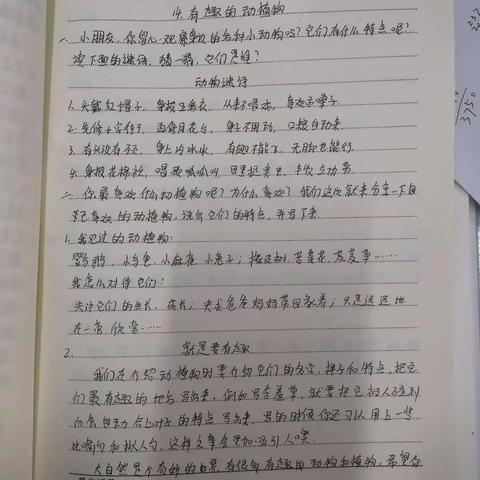 14.有趣的动植物
一、小朋友,你留心观察身边的各种小动物吗?它们有什么特点呢?
读下面的谜语,猜一猜,它们是谁?
动物谜语
1.头戴红帽子,身披五彩衣,从来不唱戏,喜欢吊嗓子.
2.先修十字街,再修月花台,身子不用动,口粮自动来.
3.有头没有颈,身上冷冰冰,有翅不能飞,无脚也能行.
4.身披花棉袄,唱歌呱呱叫,田里捉害虫,丰收立功劳.
二、你最喜欢什么动植物呢?为什么喜欢?我们这次就来分享一下自
己喜欢的动植物,说出它们的特点,并写下来.
1.我见过的动植物:
鹦鹉、小乌龟、小麻雀、小兔子;
我怎么对待它们:
关注它们的生长、成长;央求爸爸妈妈带回家养;只是远远地
在一旁欣赏……
2.
就是要有趣
我们在介绍动植物时要介绍它们的名字、样子和特点,把它
们最有趣的地方写出来,例如写含羞草,就要把它被人碰到
们会自动合上叶子的特点写出来,写的时候你还可以用上一些
比喻句和拟人句,这样文章会更加吸引人噢.
大自然是个奇妙的世界,有很多有趣的动物和植物,希望你
3750